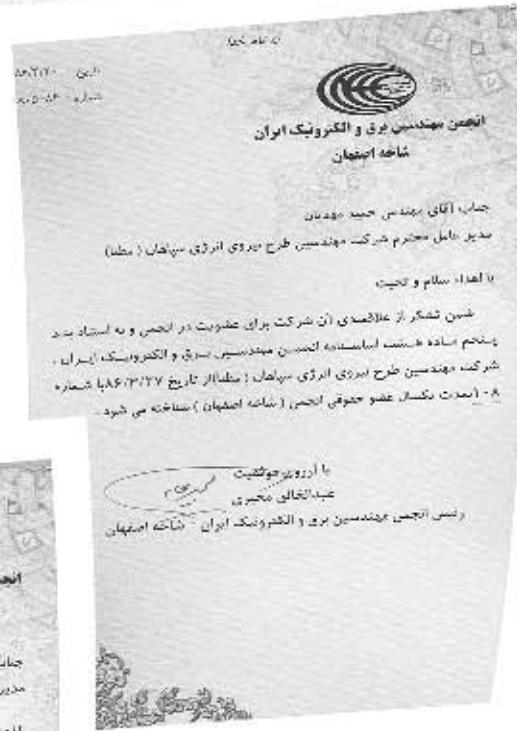 به نام خدا
تاریخ:
شماره:
انجمن مهندسین برق و الکترونیک ایران
شاخه اصفهان
جناب آقای مهندس حمید مهدیان
مدیر عامل محترم شرکت مهندسین طرح نیروی انرژی سپاهان ( مطنا)
با اهداء سلام و تحیت
ضمن تشکر از علاقمندی آن شرکت برای عضویت در انجمن و به استناد بند
پنجم ماده هشت اساسنامه انجمن مهندسین برق و الکترونیک ایران ،
شرکت مهندسین طرح نیروی انرژی سپاهان ( مطنا)از تاریخ ۸۶/۳/۲۷ با شماره
بمدت یکسال عضو حقوقی انجمن ( شاخه اصفهان ) شناخته می شود .
با آرزوی موفقیت
عبدالخالق مخبری
رئیس انجمن مهندسین برق و الکترونیک ایران - شاخه اصفهان